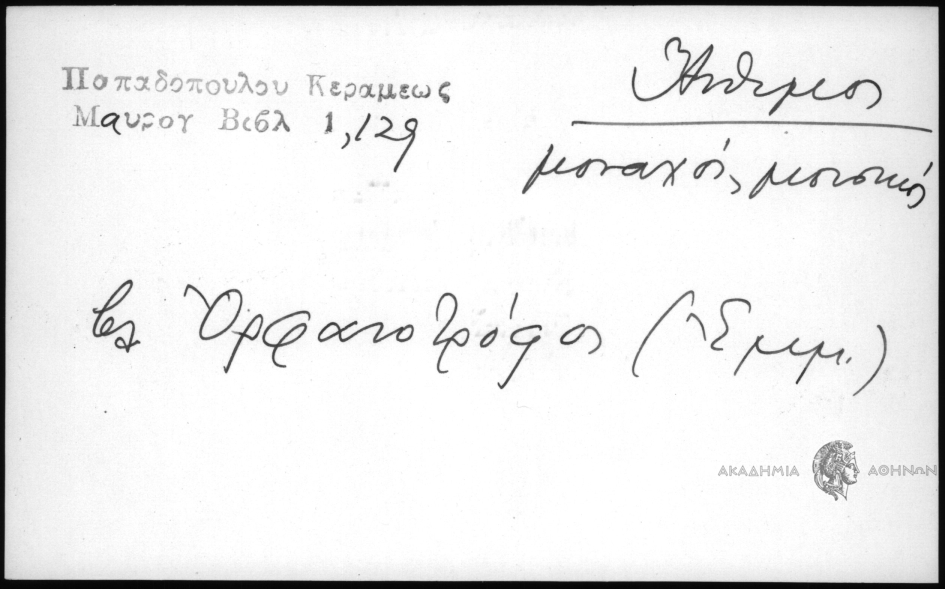 Παπαδοπουλου Κεραμεως
Μαυρογ Βιβλ 1,129
Ἄνθιμος
μοναχός, μουσικός
βλ Ὀρφανοτρόφος (Ἐμμ.)
ΑΚΑΔΗΜΙΑ ΑΘΗΝΩΝ